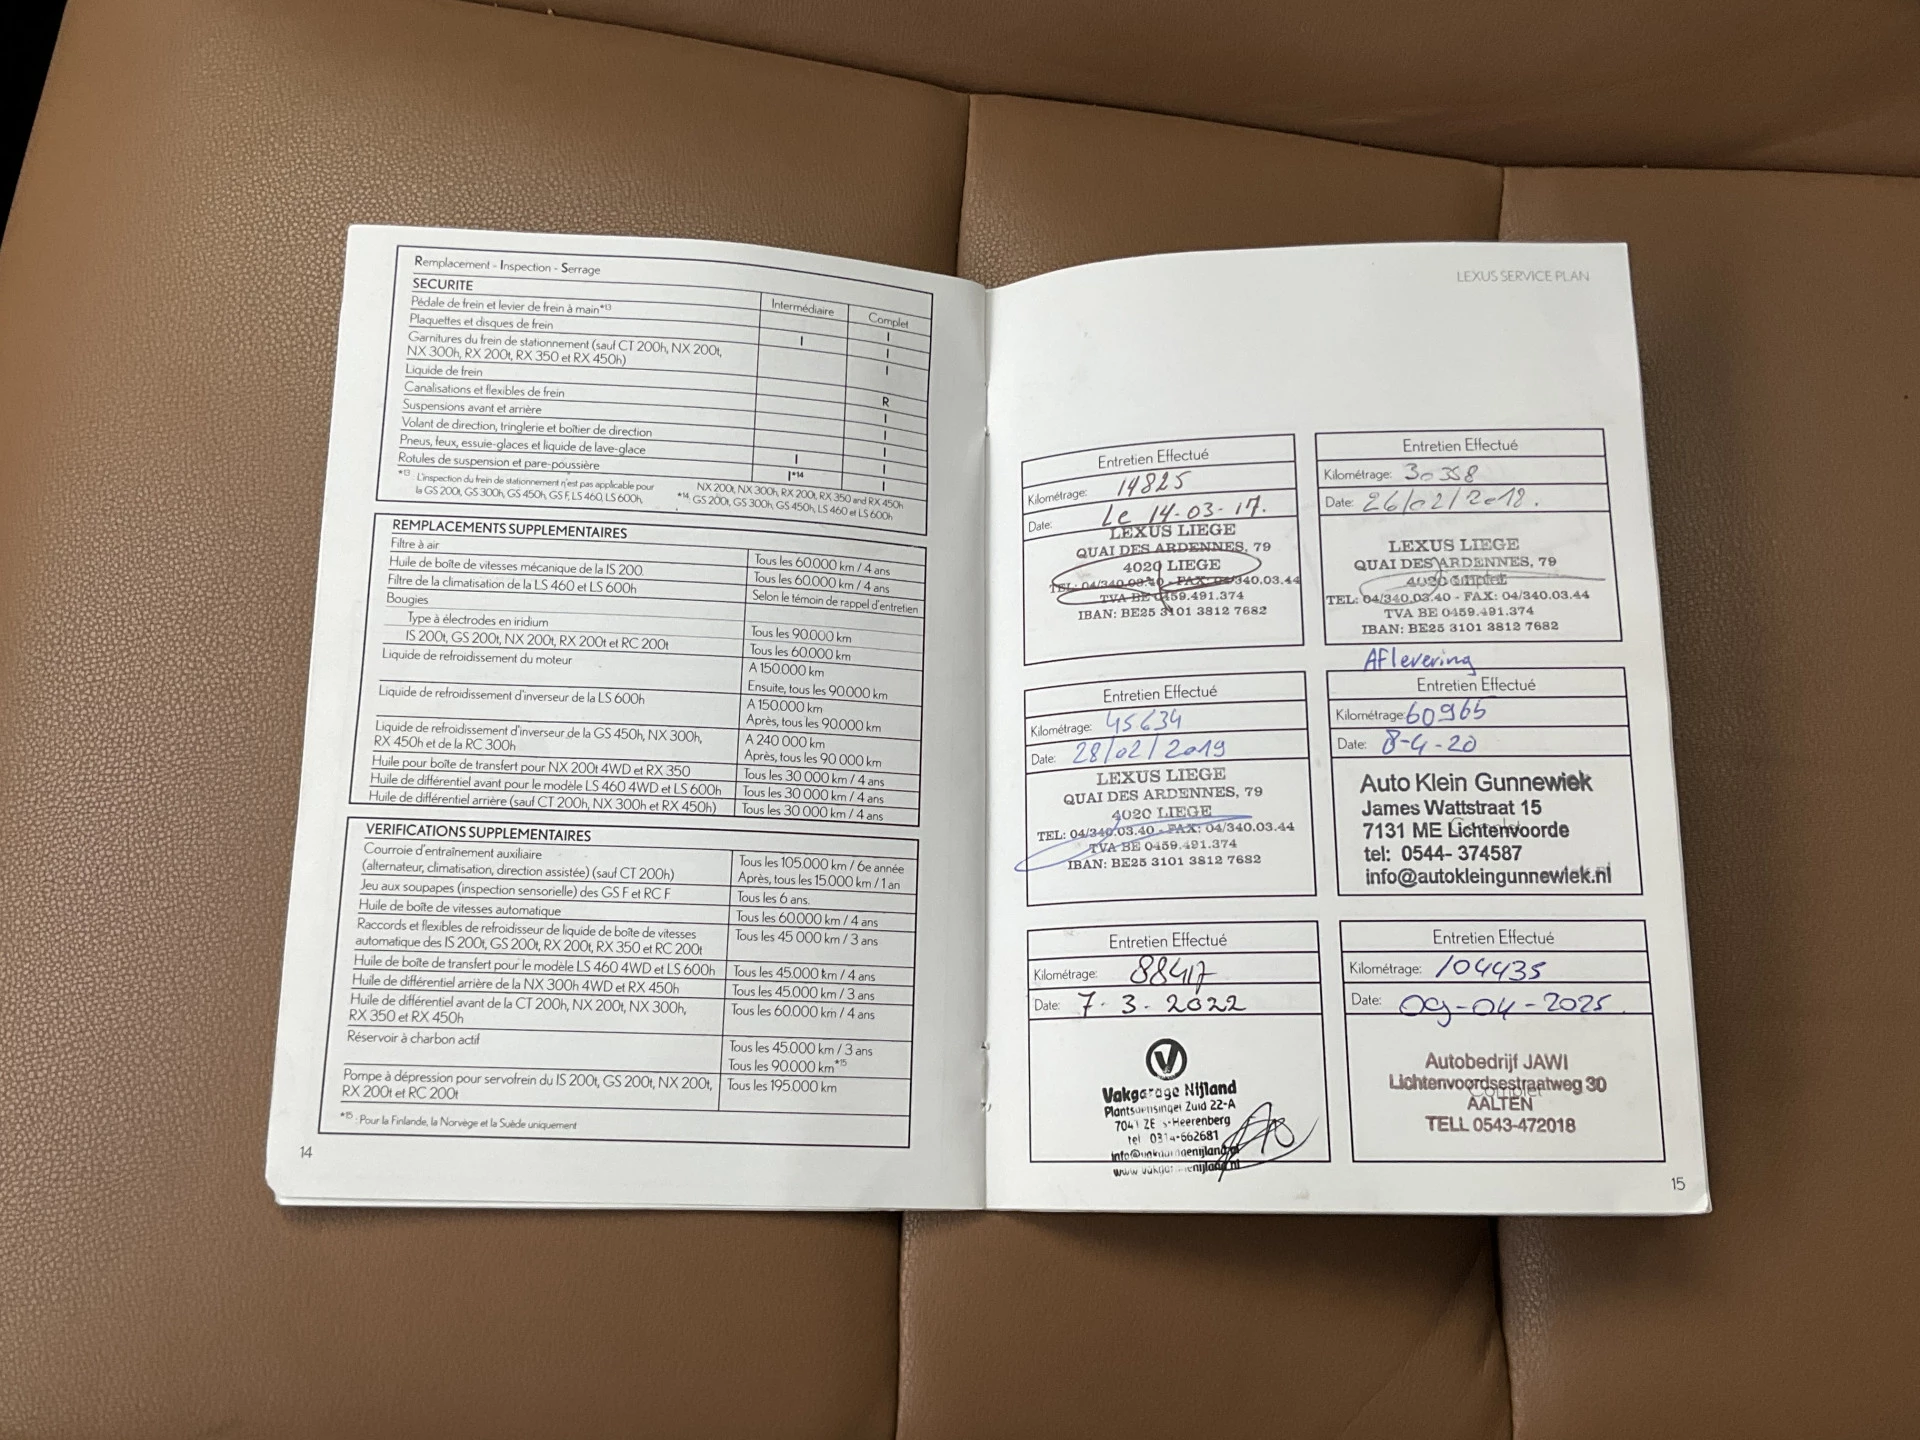 Remplacement - Inspection - Serrage
SECURITE
Intermédiaire
Complet
Pédale de frein et levier de frein à main*13
I
Plaquettes et disques de frein
I
I
Garnitures du frein de stationnement (sauf CT 200h, NX 200t,
NX 300h, RX 200t, RX 350 et RX 450h)
I
Liquide de frein
R
Canalisations et flexibles de frein
I
Suspensions avant et arrière
I
Volant de direction, tringlerie et boîtier de direction
I
Pneus, feux, essuie-glaces et liquide de lave-glace
I
I
Rotules de suspension et pare-poussière
I*14
I
*13 L'inspection du frein de stationnement n'est pas applicable pour
la GS 200t, GS 300h, GS 450h, GS F, LS 460, LS 600h.
NX 200t, NX 300h, RX 200t, RX 350 and RX 450h
*14 GS 200t, GS 300h, GS 450h, LS 460 et LS 600h
REMPLACEMENTS SUPPLEMENTAIRES
Filtre à air
Tous les 60.000 km / 4 ans
Huile de boîte de vitesses mécanique de la IS 200
Tous les 60.000 km / 4 ans
Filtre de la climatisation de la LS 460 et LS 600h
Selon le témoin de rappel d'entretien
Bougies
Type à électrodes en iridium
Tous les 90.000 km
IS 200t, GS 200t, NX 200t, RX 200t et RC 200t
Tous les 60.000 km
Liquide de refroidissement du moteur
A 150.000 km
Ensuite, tous les 90.000 km
Liquide de refroidissement d'inverseur de la LS 600h
A 150.000 km
Après, tous les 90.000 km
Liquide de refroidissement d'inverseur de la GS 450h, NX 300h,
RX 450h et de la RC 300h
A 240 000 km
Après, tous les 90 000 km
Huile pour boîte de transfert pour NX 200t 4WD et RX 350
Tous les 30 000 km / 4 ans
Huile de différentiel avant pour le modèle LS 460 4WD et LS 600h
Tous les 30 000 km / 4 ans
Huile de différentiel arrière (sauf CT 200h, NX 300h et RX 450h)
Tous les 30 000 km / 4 ans
VERIFICATIONS SUPPLEMENTAIRES
Courroie d'entraînement auxiliaire
(alternateur, climatisation, direction assistée) (sauf CT 200h)
Tous les 105.000 km / 6e année
Après, tous les 15.000 km / 1 an
Jeu aux soupapes (inspection sensorielle) des GS F et RC F
Tous les 6 ans.
Huile de boîte de vitesses automatique
Tous les 60.000 km / 4 ans
Raccords et flexibles de refroidisseur de liquide de boîte de vitesses
automatique des IS 200t, GS 200t, RX 200t, RX 350 et RC 200t
Tous les 45 000 km / 3 ans
Huile de boîte de transfert pour le modèle LS 460 4WD et LS 600h
Tous les 45.000 km / 4 ans
Huile de différentiel arrière de la NX 300h 4WD et RX 450h
Tous les 45.000 km / 3 ans
Huile de différentiel avant de la CT 200h, NX 200t, NX 300h,
RX 350 et RX 450h
Tous les 60.000 km / 4 ans
Réservoir à charbon actif
Tous les 45.000 km / 3 ans
Tous les 90.000 km*15
Pompe à dépression pour servofrein du IS 200t, GS 200t, NX 200t,
RX 200t et RC 200t
Tous les 195.000 km
*15 : Pour la Finlande, la Norvège et la Suède uniquement
14
LEXUS SERVICE PLAN
Entretien Effectué
Kilométrage: 14825
Date: Le 14-03-17.
LEXUS LIEGE
QUAI DES ARDENNES, 79
4020 LIEGE
TEL: 04/340.03.40 - FAX: 04/340.03.44
TVA BE 0459.491.374
IBAN: BE25 3101 3812 7682
Entretien Effectué
Kilométrage: 30358
Date: 26/02/2018.
LEXUS LIEGE
QUAI DES ARDENNES, 79
4020
TEL: 04/340.03.40 - FAX: 04/340.03.44
TVA BE 0459.491.374
IBAN: BE25 3101 3812 7682
Entretien Effectué
Kilométrage: 45634
Date: 28/02/2019
LEXUS LIEGE
QUAI DES ARDENNES, 79
4020 LIEGE
TEL: 04/340.03.40 - FAX: 04/340.03.44
TVA BE 0459.491.374
IBAN: BE25 3101 3812 7682
Aflevering
Entretien Effectué
Kilométrage: 60965
Date: 8-4-20
Auto Klein Gunnewiek
James Wattstraat 15
7131 ME Lichtenvoorde
tel: 0544- 374587
info@autokleingunnewiek.nl
Entretien Effectué
Kilométrage: 88417
Date: 7-3-2022
Vakgarage Nijland
Plantsoensingel Zuid 22-A
7041 ZE s-Heerenberg
tel 0314-662681
Entretien Effectué
Kilométrage: 104435
Date: 09-04-2025.
Autobedrijf JAWI
Lichtenvoordsestraatweg 30
Complet
AALTEN
TELL 0543-472018
15